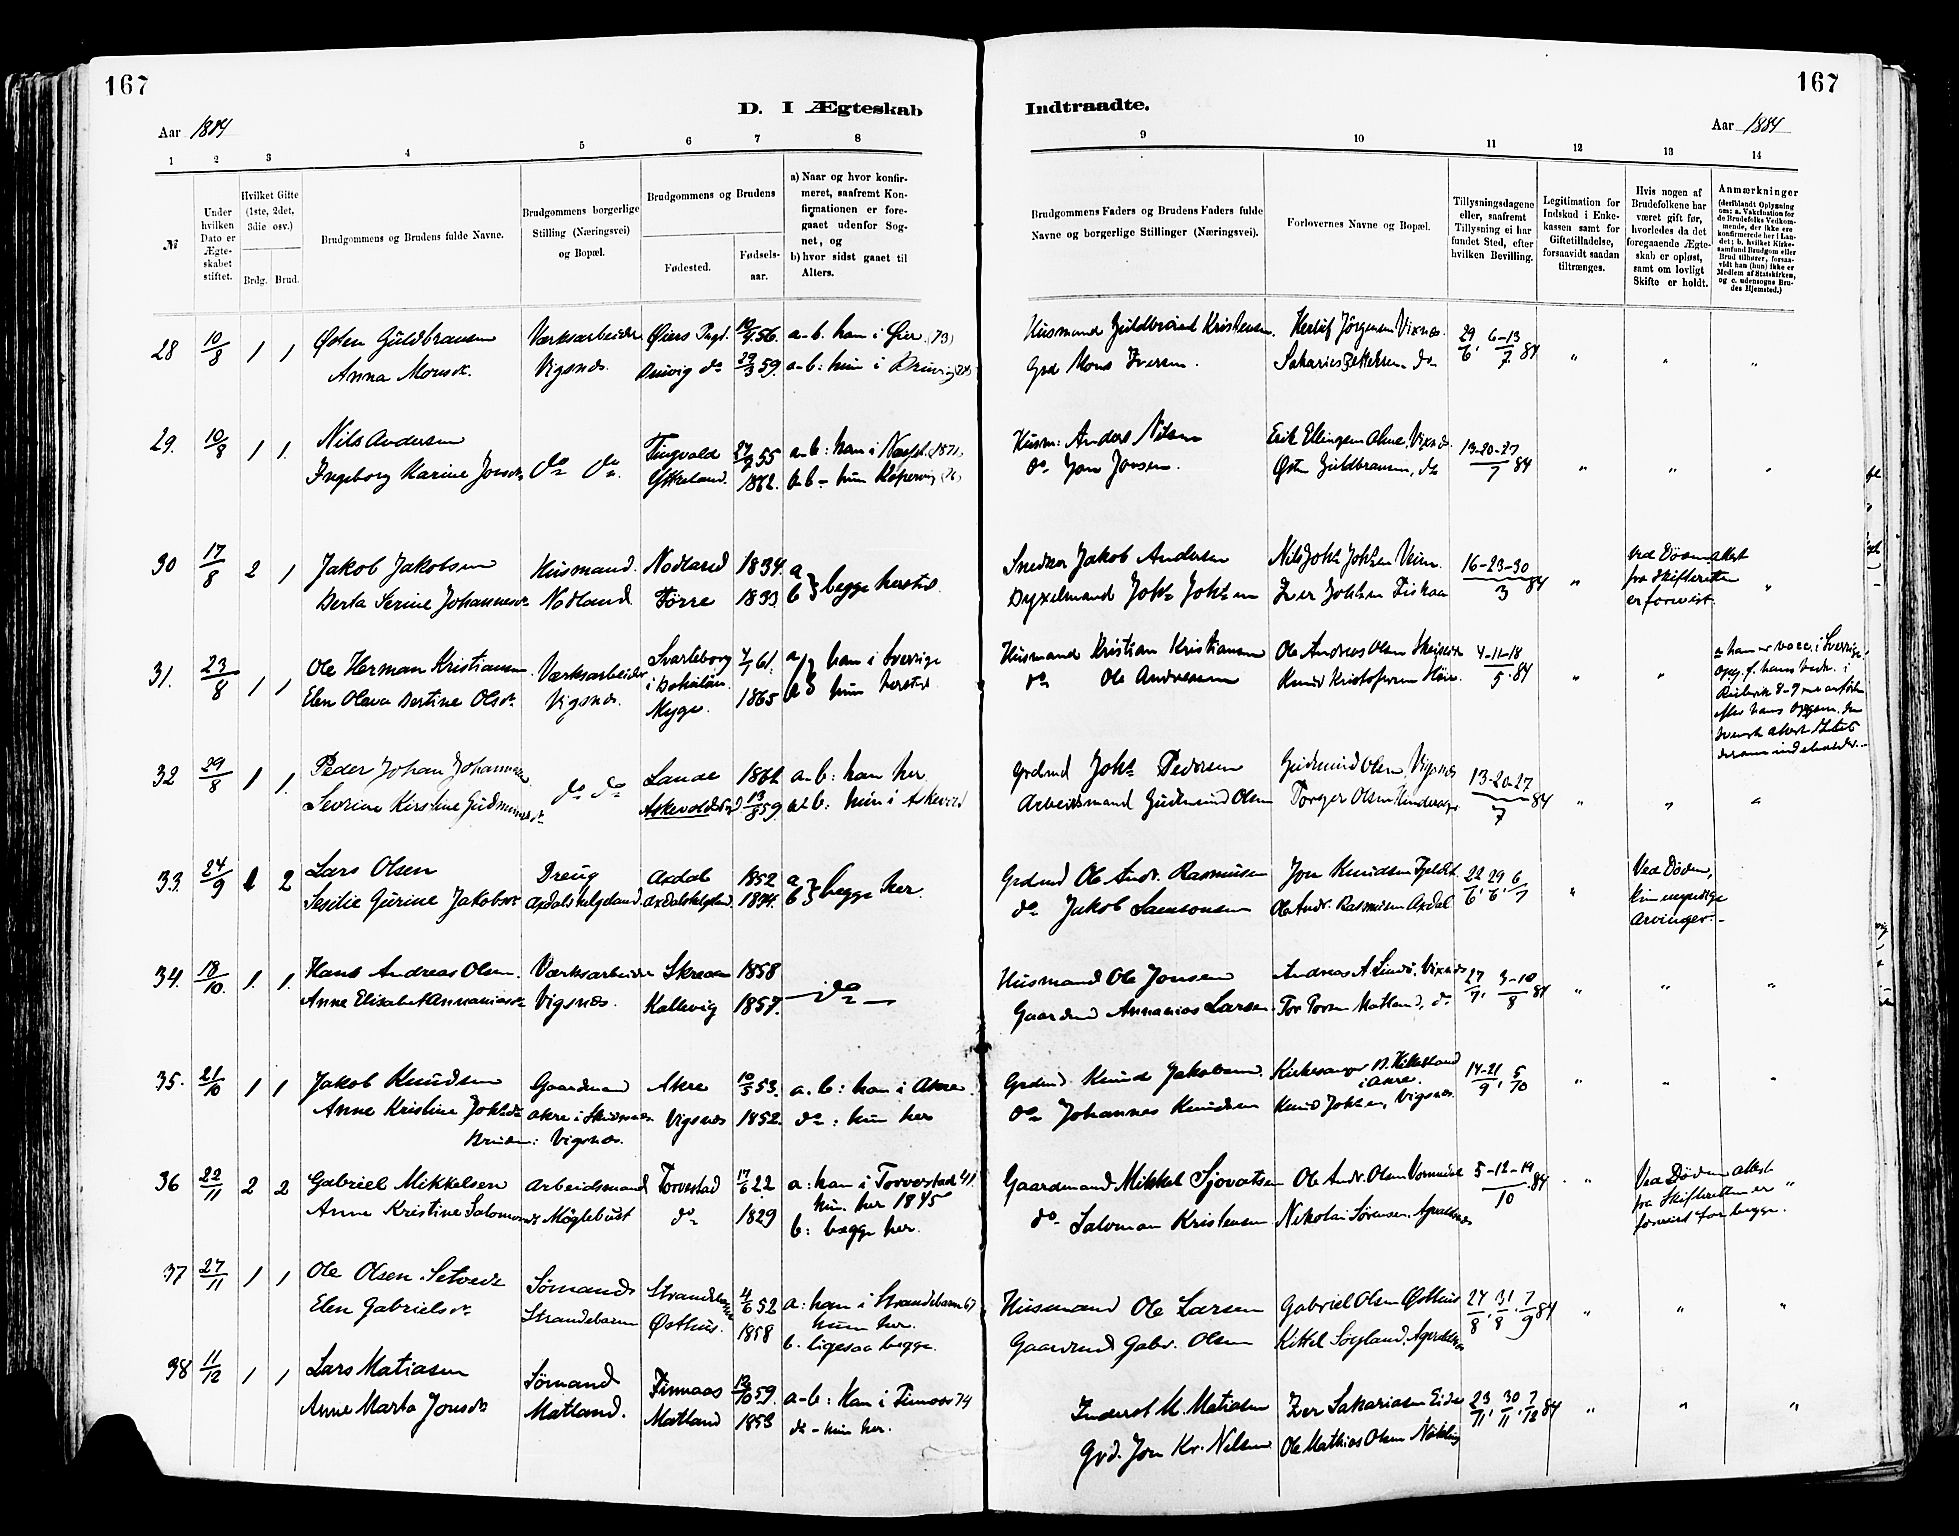 167
167
D. I Ægteskab
Indtraadte.
Aar 1884
Aar 1884
1 2 3 4 5 6 7 8 9 10 11 12 13 14
№
Under hvilken Dato er Ægteskabet stiftet.
Hvilket Gifte (1ste, 2det, 3die osv.)
Brdg. Brud.
Brudgommens og Brudens fulde Navne.
Brudgommens borgerlige Stilling (Næringsvei) og Bopæl.
Brudgommens og Brudens
Fødested.
Fødselsaar.
a) Naar og hvor konfirmeret, saafremt Konfirmationen er foregaaet udenfor Sognet, og
b) hvor sidst gaaet til Alters.
Brudgommens Faders og Brudens Faders fulde Navne og borgerlige Stillinger (Næringsvei).
Forlovernes Navne og Bopæl.
Tillysningsdagene eller, saafremt Tillysning ei har fundet Sted, efter hvilken Bevilling.
Legitimation for Indskud i Enkekassen samt for Giftetilladelse, forsaavidt saadan tiltrænges.
Hvis nogen af Brudefolkene har været gift før, hvorledes da det foregaaende Ægteskab er opløst, samt om lovligt Skifte er holdt.
Anmærkninger (deriblandt Oplysning om: a. Vakcination for de Brudefolks Vedkommende, der ikke ere konfirmerede her i Landet; b. hvilket Kirkesamfund Brudgom eller Brud tilhører, forsaavidt han (hun) ikke er Medlem af Statskirken, og c. udensogns Brudes Hjemsted.)
28 10/8 1 1 Østen Guldbransen Værksarbeider Øiers Prgd. 56. a-b. han i Øier (73) Husmand Guldbrand Kristensen Herluf Jörgensen Vixnæs 29/6, 6-13/7 84 " " "
Anna Monsdr. Vigsnæs. do 29/3 59. a-b: hun i Grd Mons Iversen. do
29. 10/8 1 1. Nils Andersen do do Tingvold 27/7 55 a-b: han i (1871) Husm: Anders Nilsen Erik Ellingsen Vixnæs 13-20-27/7 84 " " "
Ingeborg Karine Jonsdr. Ytreland. 1862. a b - hun Kopervig (76) do Jon Jonsen. Østen Guldbransen, do
30 17/8 2 1 Jakob Jakobsen Husmand. Nodland 1834. a Snedker Jakob Andersen Nils Johs Johsen 16-23-30/3 84 " ved Døden attest "
Berta Serine Johannesdr. Nodland Førre 1833. b } begge hersteds. Johs Johsen Iver Johsen Fiskaa fra Skifteretten
er forevist.
31. 23/8 1 1 Ole Herman Kristiansen Værksarbeider Svarteborg 61. a } han i Sverrige Husmand Kristian Kristiansen Ole Andreas Olsen 4-11-18/5 84 " " a han er vacc. i Sverrige.
Elen Olava Bertine Olsdr. Vigsnæs. i Bohuslän. 1865 b } hun hersteds do Ole Andreassen Knud Kristofersen
Myge.
32 29/8 1 1. Peder Johan Johannesen do do Lande 1862 a-b: han her Grdmd Johs Pedersen Gudmund Olsen Vigsnæs 13-20-27/7 84 " " "
Severine Kirstine Gudmundsdr. Askevold 13/8 59. a b: hun i Askevold Arbeidsmand Gudmund Olsen Torger Olsen
33. 24/9 1 2 Lars Olsen Dreng Axdal 1852 a Grdmd Ole Andr. Rasmusen Jon Knudsen 22/6 29/6 6/7 " Ved Døden,
Sesilie Gurine Jakobsdr. Axdalshelgeland. Axdalshelgeland 1844. b } begge her. do Jakob Samsonsen Ole Andr. Rasmusen Axdal kun myndige
Arvinger.
34. 18/10. 1. 1. Hans Andreas Olsen. Værksarbeider Skreaen 1858 do Husmand Ole Jonsen Andreas A. Vixnæs 27/7, 3-10/8 84 " " "
Anne Elisabet Annaniasdr. Vigsnæs. Kallevig 1857. Gaardmd Annanias Larsen Tor Matland, do
35. 21/10 1 1 Jakob Knudsen Gaardmand Akre 10/5 53. a. b: han i Akre Grdmd Knud Jakobsen Kirkesanger 14-21/9, 5/10 " " "
i Akre.
Anne Kristine Johsdr. Akre i Skudenes Vigsnæs 1852. do : hun her do Johannes Knudsen Knud Johsen, Vigsnæs.
Bruden: Vigsnæs.
36 22/11 2 2 Gabriel Mikkelsen Arbeidsmand Torvestad 17/6 22 a: han i Torvestad 41. Gaardmand Mikkel Sjovatsen Ole Andr. Olsen 5-12-19/10 84 " Ved Døden attest
Anne Kristine Salomonsdr. do 1829 hun. her 1845 do Salomon Kristensen Nikolai Sørensen, fra Skifteretten er "
b: begge her. forevist for begge.
37 27/11 1 1 Ole Olsen Sømand Strandebarm 4/6 52 a: han i Strandebarm 67 Husmand Ole Larsen Gabriel Olsen Østhus 24/8, 31/8, 7/9 84 " " "
Elen Gabrielsdr. Strandebarm Østhus. 1858 hun her. Gaardmd Gabr. Olsen Kittel
b. ligesaa begge.
38 11/12 1 1 Lars Matiasen Sømand Finnaas 12/10 59. a-b: han i Finnaas 74 Inderst M. Matiasen Iver Sakariasen Eide 23/11, 30/11, 7/12 84 " " "
Anne Marta Jonsdr. Matland. Matland 1853 do - hun her. Grd. Jon Kr. Nilsen Ole Mathias Olsen